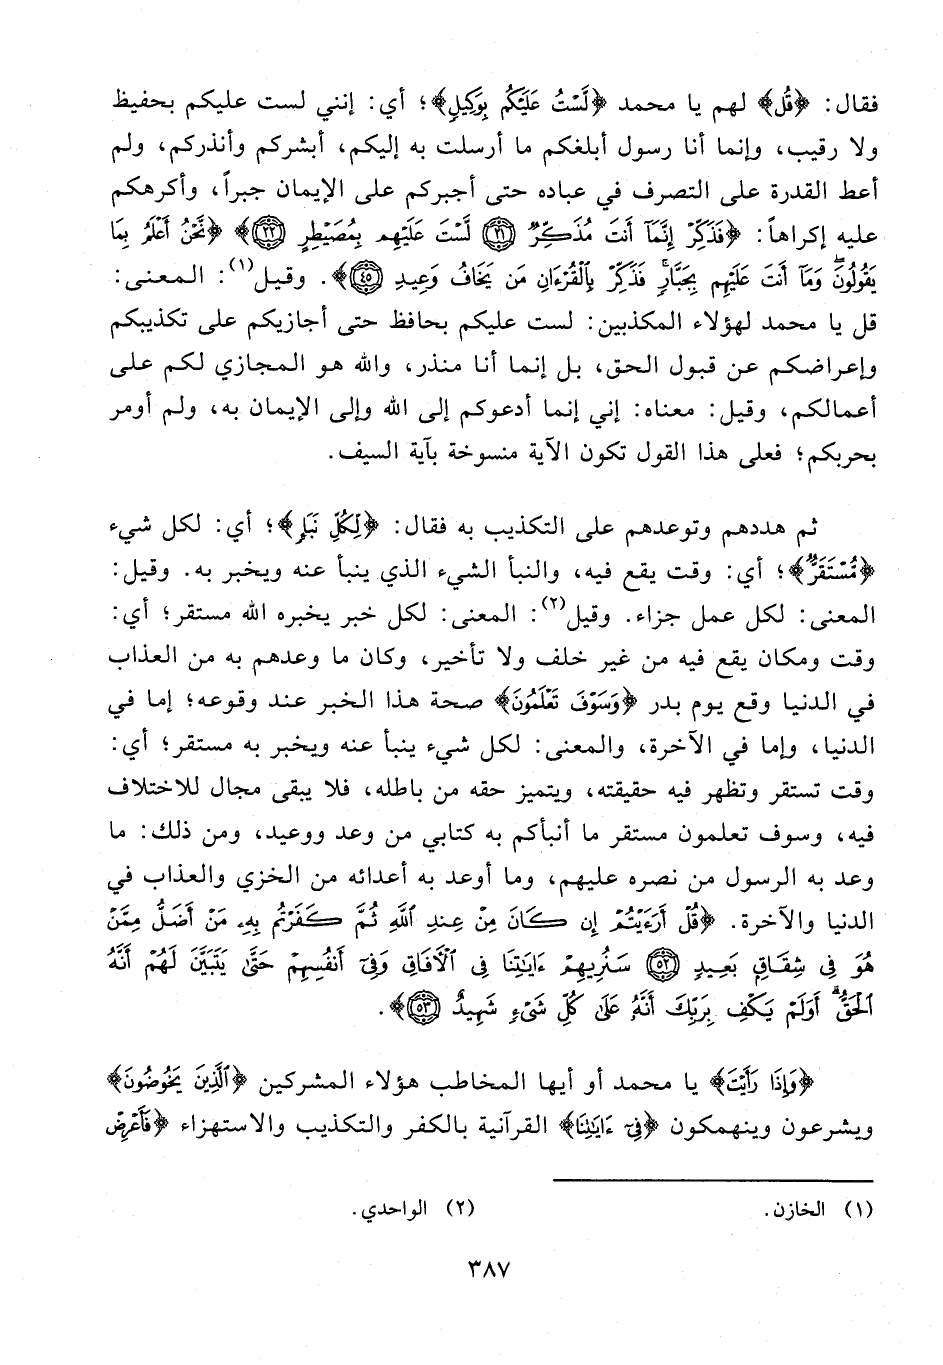 فقال: ﴿قُل﴾ لهم يا محمد ﴿لَّسْتُ عَلَيْكُم بِوَكِيلٍ﴾؛ أي: إنني لست عليكم بحفيظ
ولا رقيب، وإنما أنا رسول أبلغكم ما أرسلت به إليكم، أبشركم وأنذركم، ولم
أعط القدرة على التصرف في عباده حتى أجبركم على الإيمان جبراً، وأكرهكم
عليه إكراهاً: ﴿فَذَكِّرْ إِنَّمَآ أَنتَ مُذَكِّرٌ ۝٢١ لَّسْتَ عَلَيْهِم بِمُصَيْطِرٍ ۝٢٢﴾ ﴿نَّحْنُ أَعْلَمُ بِمَا
يَقُولُونَۖ وَمَآ أَنتَ عَلَيْهِم بِجَبَّارٍۖ فَذَكِّرْ بِالْقُرْءَانِ مَن يَخَافُ وَعِيدِ ۝٤٥﴾. وقيل(١): المعنى:
قل يا محمد لهؤلاء المكذبين: لست عليكم بحافظ حتى أجازيكم على تكذيبكم
وإعراضكم عن قبول الحق، بل إنما أنا منذر، والله هو المجازي لكم على
أعمالكم، وقيل: معناه: إني إنما أدعوكم إلى الله وإلى الإيمان به، ولم أومر
بحربكم؛ فعلى هذا القول تكون الآية منسوخة بآية السيف.
ثم هددهم وتوعدهم على التكذيب به فقال: ﴿لِّكُلِّ نَبَإٍ﴾؛ أي: لكل شيء
﴿مُّسْتَقَرٌّ﴾؛ أي: وقت يقع فيه، والنبأ الشيء الذي ينبأ عنه ويخبر به. وقيل:
المعنى: لكل عمل جزاء. وقيل(٢): المعنى: لكل خبر يخبره الله مستقر؛ أي:
وقت ومكان يقع فيه من غير خلف ولا تأخير، وكان ما وعدهم به من العذاب
في الدنيا وقع يوم بدر ﴿وَسَوْفَ تَعْلَمُونَ﴾ صحة هذا الخبر عند وقوعه؛ إما في
الدنيا، وإما في الآخرة، والمعنى: لكل شيء ينبأ عنه ويخبر به مستقر؛ أي:
وقت تستقر وتظهر فيه حقيقته، ويتميز حقه من باطله، فلا يبقى مجال للاختلاف
فيه، وسوف تعلمون مستقر ما أنبأكم به كتابي من وعد ووعيد، ومن ذلك: ما
وعد به الرسول من نصره عليهم، وما أوعد به أعدائه من الخزي والعذاب في
الدنيا والآخرة. ﴿قُلْ أَرَءَيْتُمْ إِن كَانَ مِنْ عِندِ اللَّهِ ثُمَّ كَفَرْتُم بِهِۦ مَنْ أَضَلُّ مِمَّنْ
هُوَ فِى شِقَاقٍ بَعِيدٍ ۝٥٢ سَنُرِيهِمْ ءَايَٰتِنَا فِى الْأَفَاقِ وَفِىٓ أَنفُسِهِمْ حَتَّىٰ يَتَبَيَّنَ لَهُمْ أَنَّهُ
الْحَقُّۗ أَوَلَمْ يَكْفِ بِرَبِّكَ أَنَّهُۥ عَلَىٰ كُلِّ شَىْءٍ شَهِيدٌ ۝٥٣﴾.
﴿وَإِذَا رَأَيْتَ﴾ يا محمد أو أيها المخاطب هؤلاء المشركين ﴿الَّذِينَ يَخُوضُونَ﴾
ويشرعون وينهمكون ﴿فِىٓ ءَايَٰتِنَا﴾ القرآنية بالكفر والتكذيب والاستهزاء ﴿فَأَعْرِضْ
(١) الخازن.
(٢) الواحدي.
٣٨٧